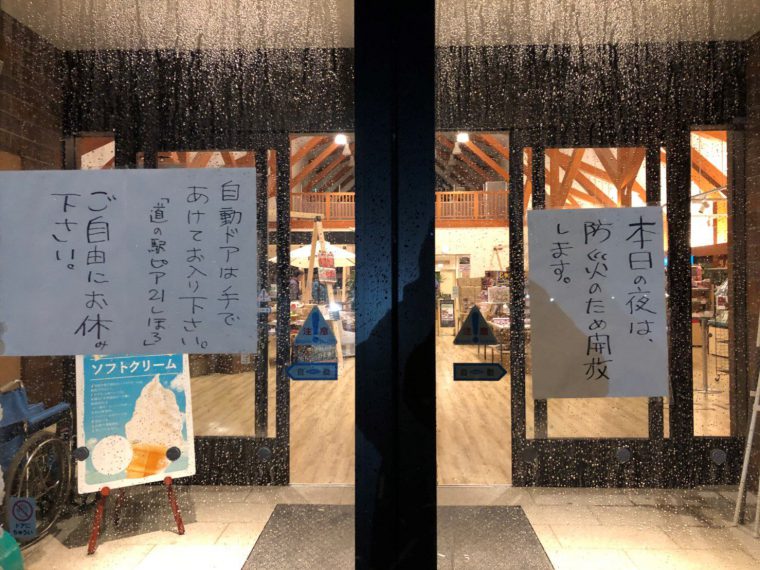 本日の夜は、
防災のため開放
します。
自動ドアは手で
あけてお入り下さい。
「道の駅ピア21しほろ」
ご自由にお休み
下さい。
注意
自動
注意
自動
ソフトクリーム
ドアに
ちゅうい